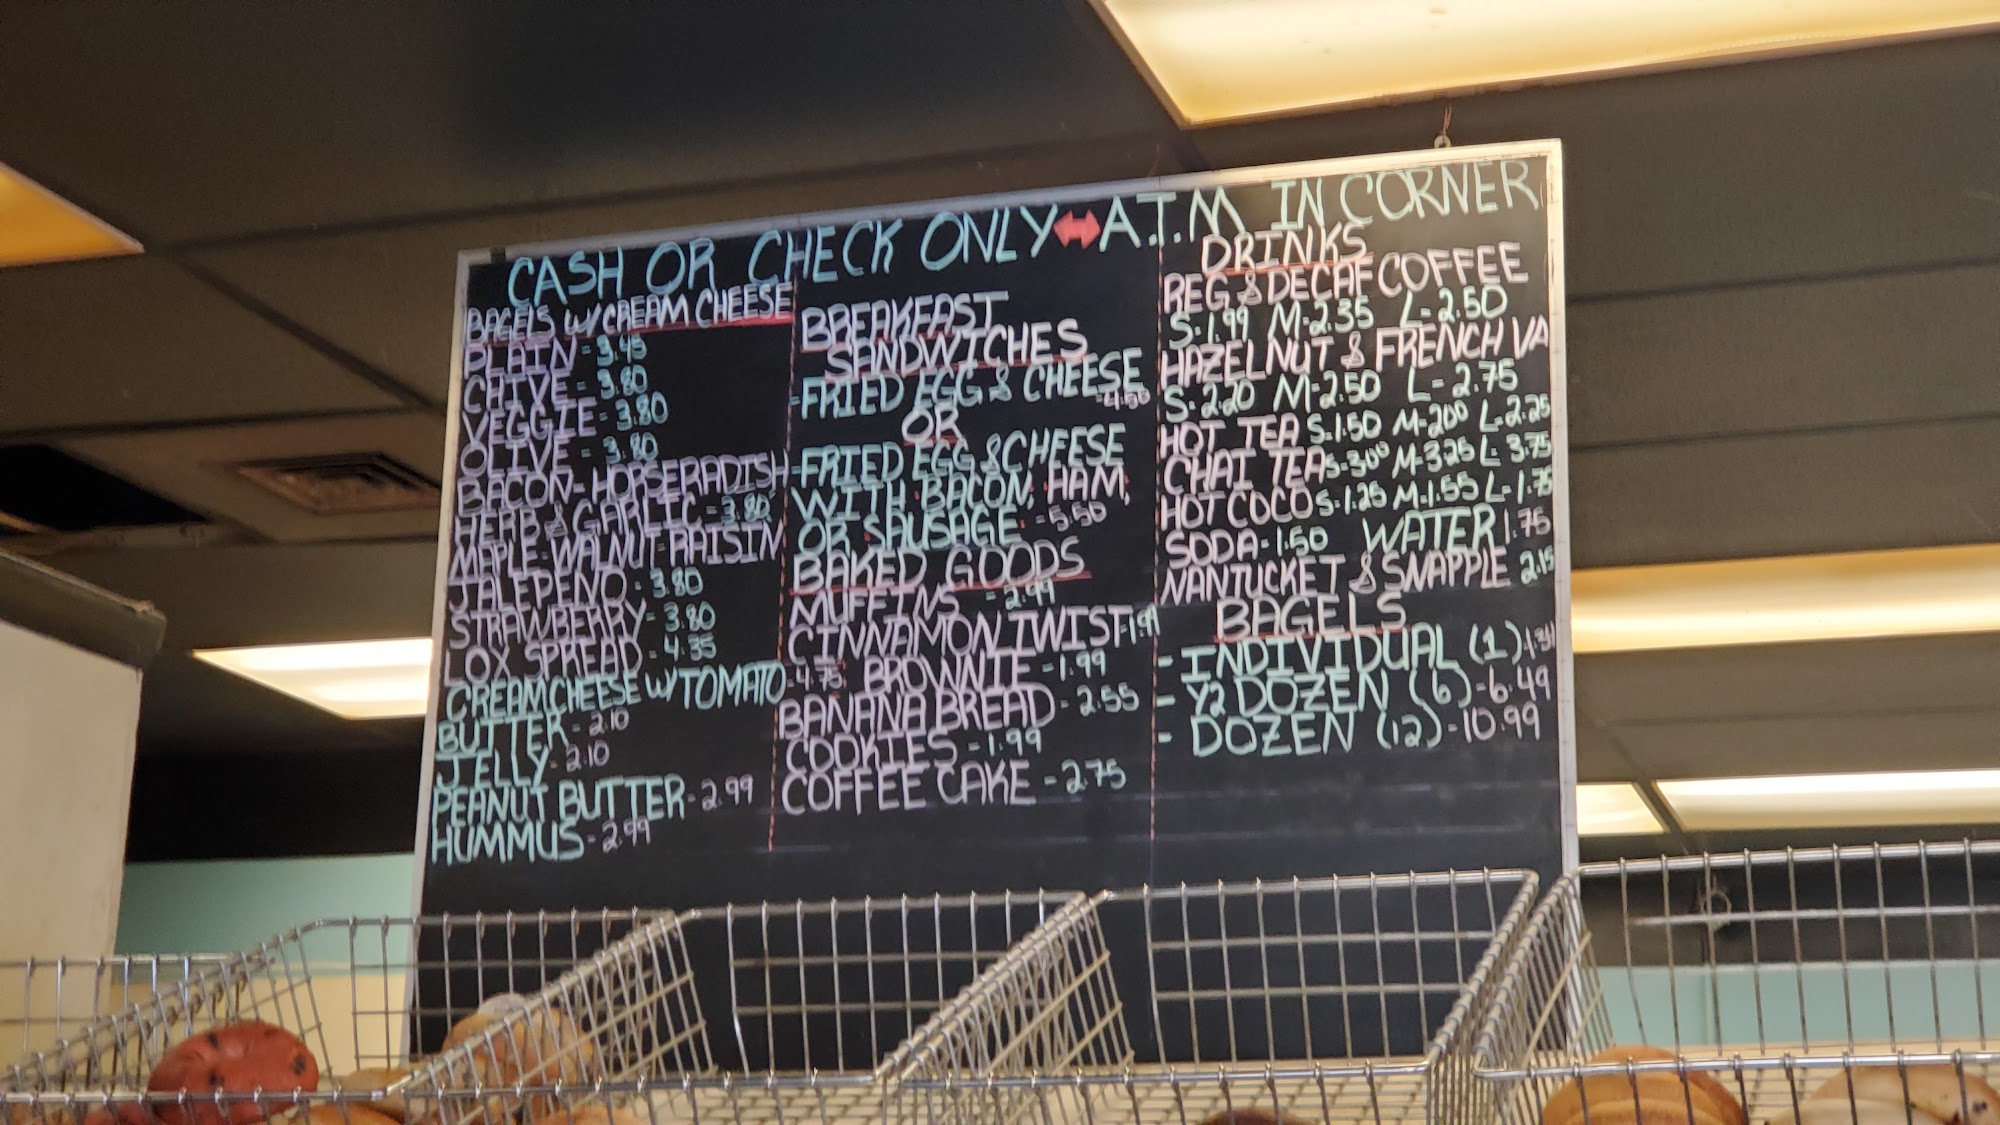 CASH OR CHECK ONLY ↔ A.T.M IN CORNER
BAGELS W/ CREAM CHEESE
PLAIN - 3.45
CHIVE - 3.80
VEGGIE - 3.80
OLIVE - 3.80
BACON - HORSERADISH
HERB & GARLIC - 3.80
MAPLE-WALNUT-RAISIN
JALEPENO - 3.80
STRAWBERRY - 3.80
LOX SPREAD - 4.35
CREAM CHEESE W/ TOMATO - 4.75
BUTTER - 2.10
JELLY - 2.10
PEANUT BUTTER - 2.99
HUMMUS - 2.99
BREAKFAST
SANDWICHES
- FRIED EGG & CHEESE
- 4.50
OR
- FRIED EGG & CHEESE
WITH BACON, HAM,
OR SAUSAGE - 5.50
BAKED GOODS
MUFFINS - 2.99
CINNAMON TWIST - 1.99
BROWNIE - 1.99
BANANA BREAD - 2.55
COOKIES - 1.99
COFFEE CAKE - 2.75
DRINKS
REG & DECAF COFFEE
S - 1.99 M - 2.35 L - 2.50
HAZELNUT & FRENCH VA
S - 2.20 M - 2.50 L - 2.75
HOT TEA S - 1.50 M - 2.00 L - 2.25
CHAI TEA S - 3.00 M - 3.25 L - 3.75
HOT COCO S - 1.25 M - 1.55 L - 1.75
SODA - 1.50 WATER 1.75
NANTUCKET & SNAPPLE 2.15
BAGELS
- INDIVIDUAL (1)
- 1/2 DOZEN (6) - 6.49
- DOZEN (12) - 10.99